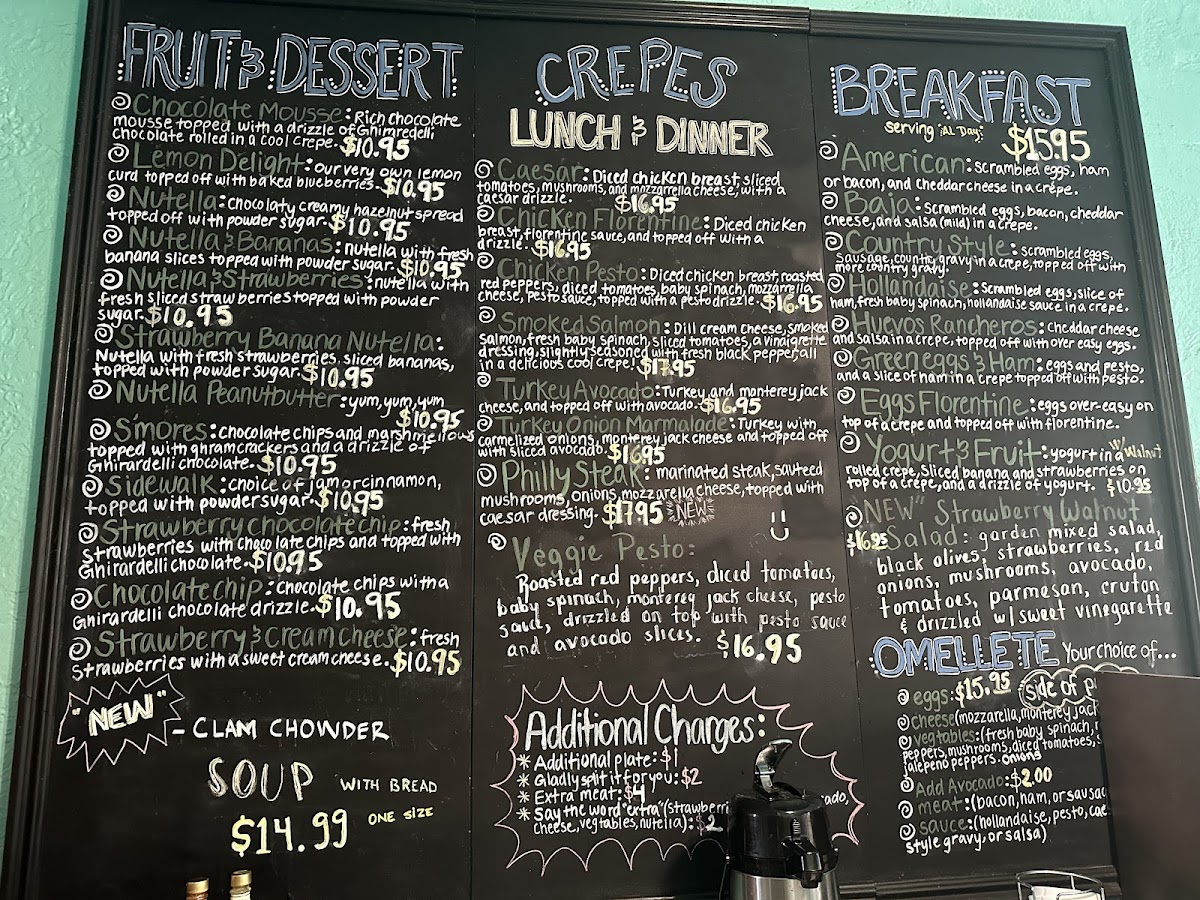 FRUIT & DESSERT
Chocolate Mousse: Rich chocolate
mousse topped with a drizzle of Ghimredelli
chocolate rolled in a cool crepe. $10.95
Lemon Delight: our very own lemon
curd topped off with baked blueberries. $10.95
Nutella: chocolaty creamy hazelnut spread
topped off with powder sugar. $10.95
Nutella & Bananas: nutella with fresh
banana slices topped with powder sugar. $10.95
Nutella & Strawberries: nutella with
fresh sliced strawberries topped with powder
sugar. $10.95
Strawberry Banana Nutella:
Nutella with fresh strawberries, sliced bananas,
topped with powder sugar. $10.95
Nutella Peanutbutter: yum, yum, yum
$10.95
S'mores: chocolate chips and marshmellows
topped with ghramcrackers and a drizzle of
Ghirardelli chocolate. $10.95
Sidewalk: choice of jam or cinnamon,
topped with powder sugar. $10.95
Strawberry chocolate chip: fresh
strawberries with chocolate chips and topped with
Ghirardelli chocolate. $10.95
Chocolate chip: chocolate chips with a
Ghirardelli chocolate drizzle. $10.95
Strawberry & Cream cheese: fresh
strawberries with a sweet cream cheese. $10.95
"NEW" - CLAM CHOWDER
SOUP WITH BREAD
$14.99 ONE SIZE
CREPES
LUNCH & DINNER
Caesar: Diced chicken breast, sliced
tomatoes, mushrooms, and mozzarrella cheese, with a
caesar drizzle. $16.95
Chicken Florentine: Diced chicken
breast, florentine sauce, and topped off with a
drizzle. $16.95
Chicken Pesto: Diced chicken breast, roasted
red peppers, diced tomatoes, baby spinach, mozzarella
cheese, pesto sauce, topped with a pesto drizzle. $16.95
Smoked Salmon: Dill cream cheese, smoked
salmon, fresh baby spinach, sliced tomatoes, a vinaigrette
dressing, slightly seasoned with fresh black pepper, all
in a delicious cool crepe! $17.95
Turkey Avocado: Turkey and monterey jack
cheese, and topped off with avocado. $16.95
Turkey Onion Marmalade: Turkey with
carmelized onions, monterey jack cheese and topped off
with sliced avocado. $16.95
Philly Steak: marinated steak, sauteed
mushrooms, onions, mozzarella cheese, topped with
caesar dressing. $17.95 NEW
Veggie Pesto:
Roasted red peppers, diced tomatoes,
baby spinach, monterey jack cheese, pesto
sauce, drizzled on top with pesto sauce
and avocado slices. $16.95
Additional Charges:
* Additional plate: $1
* Gladly split it for you: $2
* Extra meat: $4
* Say the word "extra" (strawberri
cheese, vegtables, nutella): $2
BREAKFAST
serving "All Day" $15.95
American: scrambled eggs, ham
or bacon, and cheddar cheese in a crepe.
Baja: scrambled eggs, bacon, cheddar
cheese, and salsa (mild) in a crepe.
Country Style: scrambled eggs,
sausage, country gravy in a crepe, topped off with
more country gravy.
Hollandaise: Scrambled eggs, slice of
ham, fresh baby spinach, hollandaise sauce in a crepe.
Huevos Rancheros: cheddar cheese
and salsa in a crepe, topped off with over easy eggs.
Green eggs & Ham: eggs and pesto,
and a slice of ham in a crepe topped off with pesto.
Eggs Florentine: eggs over-easy on
top of a crepe and topped off with florentine.
Yogurt & Fruit: yogurt in a w/ Walnut
rolled crepe, sliced banana and strawberries on
top of a crepe, and a drizzle of yogurt. $10.95
"NEW" Strawberry Walnut
$16.95 Salad: garden mixed salad,
black olives, strawberries, red
onions, mushrooms, avocado,
tomatoes, parmesan, crutan
& drizzled w/ sweet vinegarette
OMELLETE Your choice of...
eggs: $15.95 side of p
cheese (mozzarella, monterey jack
vegtables: (fresh baby spinach,
peppers, mushrooms, diced tomatoes,
jalepeno peppers. onions
Add Avocado: $2.00
meat: (bacon, ham, or sausa
sauce: (hollandaise, pesto, cae
style gravy, or salsa)